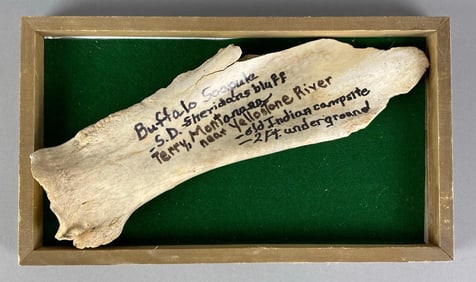 Buffalo Scapula
- S.D. Sheridans bluff
Terry, Montana
near Yellostone River
- old Indian campsite
- 2 Ft. underground